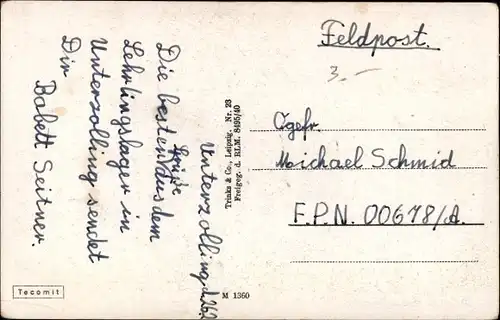 Feldpost.
3.-
Ogefr.
Michael Schmid
F.P.N. 00678/A.
Unterzolling, d. 26.2
Die besten
Grüße
aus dem
Lehrlingslager in
Unterzolling sendet
Dir
Babett Seitner.
Trinks & Co., Leipzig. Nr. 23
Freigeg. d. RLM. 8495/40
M 1360
Tecomit